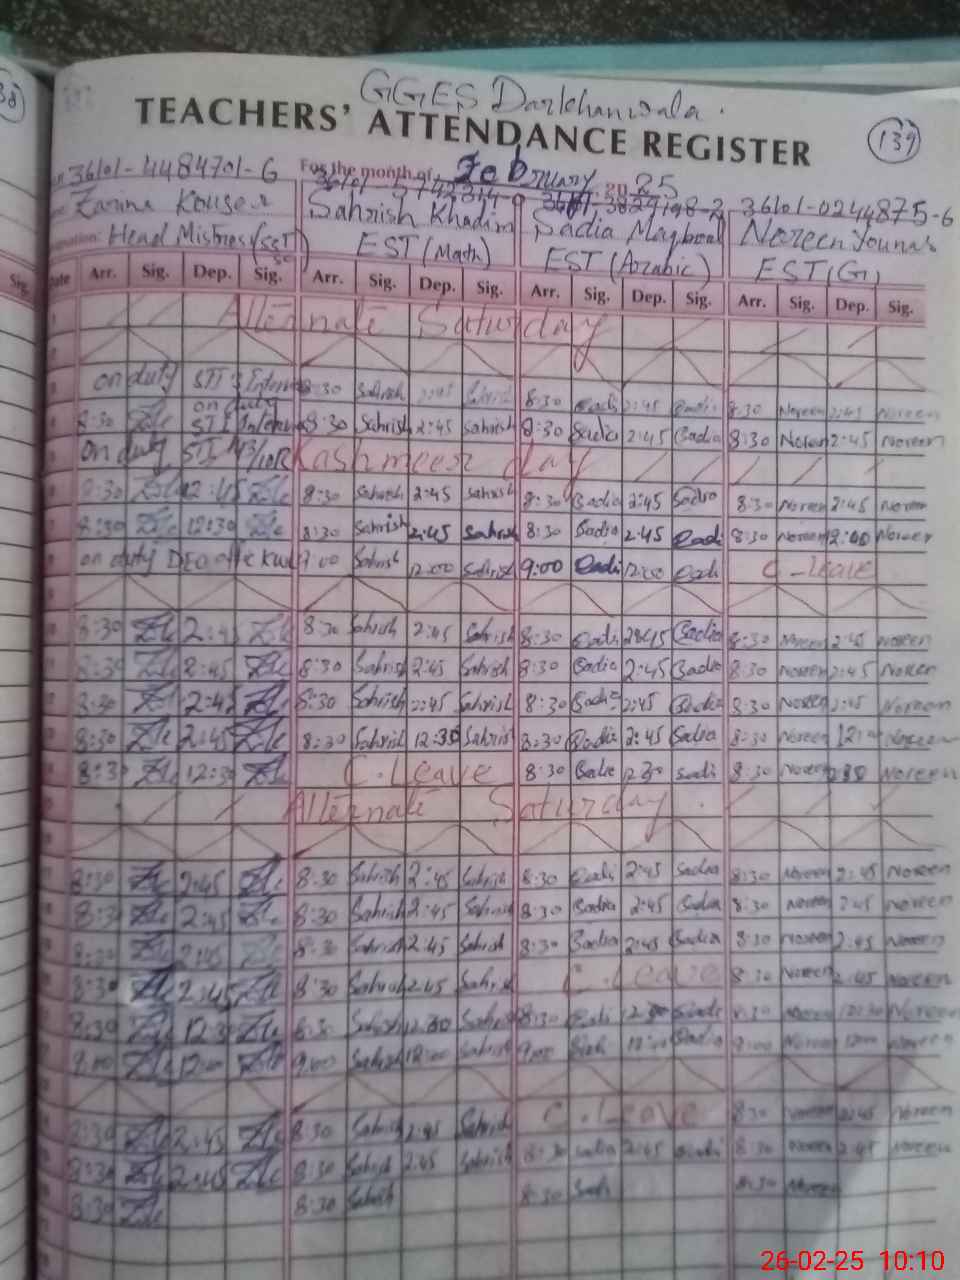 GGES Darkhanwala.
TEACHERS' ATTENDANCE REGISTER
139
36101-4484701-6 For the month of February 2025
36101-0244875-6
Zarina Kouser Sahrish Khadim Sadia Maqbool Noreen Younas
Head Mistres (SST) EST (Math) EST (Arabic) EST (G)
Arr. Sig. Dep. Sig. Arr. Sig. Dep. Sig. Arr. Sig. Dep. Sig. Arr. Sig. Dep. Sig.
Alternate Saturday
on duty STI's 8:30 Sahrish 8:30 2:45 8:30 Noreen 2:45 Noreen
8:30 on duty 8:30 Sahrish 2:45 Sahrish 8:30 Sadia 2:45 Sadia 8:30 Noreen 2:45 Noreen
on duty STI Kashmeer day
8:30 2:45 8:30 Sahrish 2:45 Sahrish 8:30 Sadia 2:45 Sadia 8:30 Noreen 2:45 Noreen
8:30 12:30 8:30 Sahrish 2:45 Sahrish 8:30 Sadia 2:45 Sadi 8:30 Noreen 2:00 Noreen
on duty DEO office 9:00 Sahrish 12:00 Sahrish 9:00 Sadi 12:00 Sadi C-Leave
8:30 2:45 8:30 Sahrish 2:45 Sahrish 8:30 Sadi 2:45 Sadia 8:30 Noreen 2:45 Noreen
8:30 2:45 8:30 Sahrish 2:45 Sahrish 8:30 Sadia 2:45 Sadia 8:30 Noreen 2:45 Noreen
8:30 2:45 8:30 Sahrish 2:45 Sahrish 8:30 Sadia 2:45 Sadia 8:30 Noreen 2:45 Noreen
8:30 2:45 8:30 Sahrish 12:30 Sahrish 8:30 Sadia 2:45 Sadia 8:30 Noreen Noreen
8:30 12:30 C.Leave 8:30 12:30 Sadi 8:30 Noreen Noreen
Alternate Saturday
8:30 2:45 8:30 Sahrish 2:45 Sahrish 8:30 Sadi 2:45 Sadia 8:30 Noreen 2:45 Noreen
8:30 2:45 8:30 Sahrish 2:45 Sahrish 8:30 Sadia 2:45 Sadia 8:30 Noreen 2:45 Noreen
8:30 2:45 8:30 Sahrish 2:45 Sahrish 8:30 Sadia 2:45 Sadia 8:30 Noreen 2:45 Noreen
8:30 2:45 8:30 Sahrish 2:45 Sahrish C.Leave 8:30 Noreen 2:45 Noreen
8:30 12:30 8:30 Sahrish 12:30 Sahrish 8:30 Sadi 12:30 8:30 Noreen 12:30 Noreen
9:00 12:00 9:00 Sahrish 12:00 Sahrish 9:00 12:00 Sadia 9:00 Noreen 12:00 Noreen
8:30 2:45 8:30 Sahrish 2:45 Sahrish C.Leave 8:30 Noreen 2:45 Noreen
8:30 2:45 8:30 Sahrish 2:45 Sahrish 8:30 Sadia 2:45 Sadi 8:30 Noreen 2:45 Noreen
8:30 8:30 Sahrish 8:30 Sadi 8:30 Noreen
26-02-25 10:10